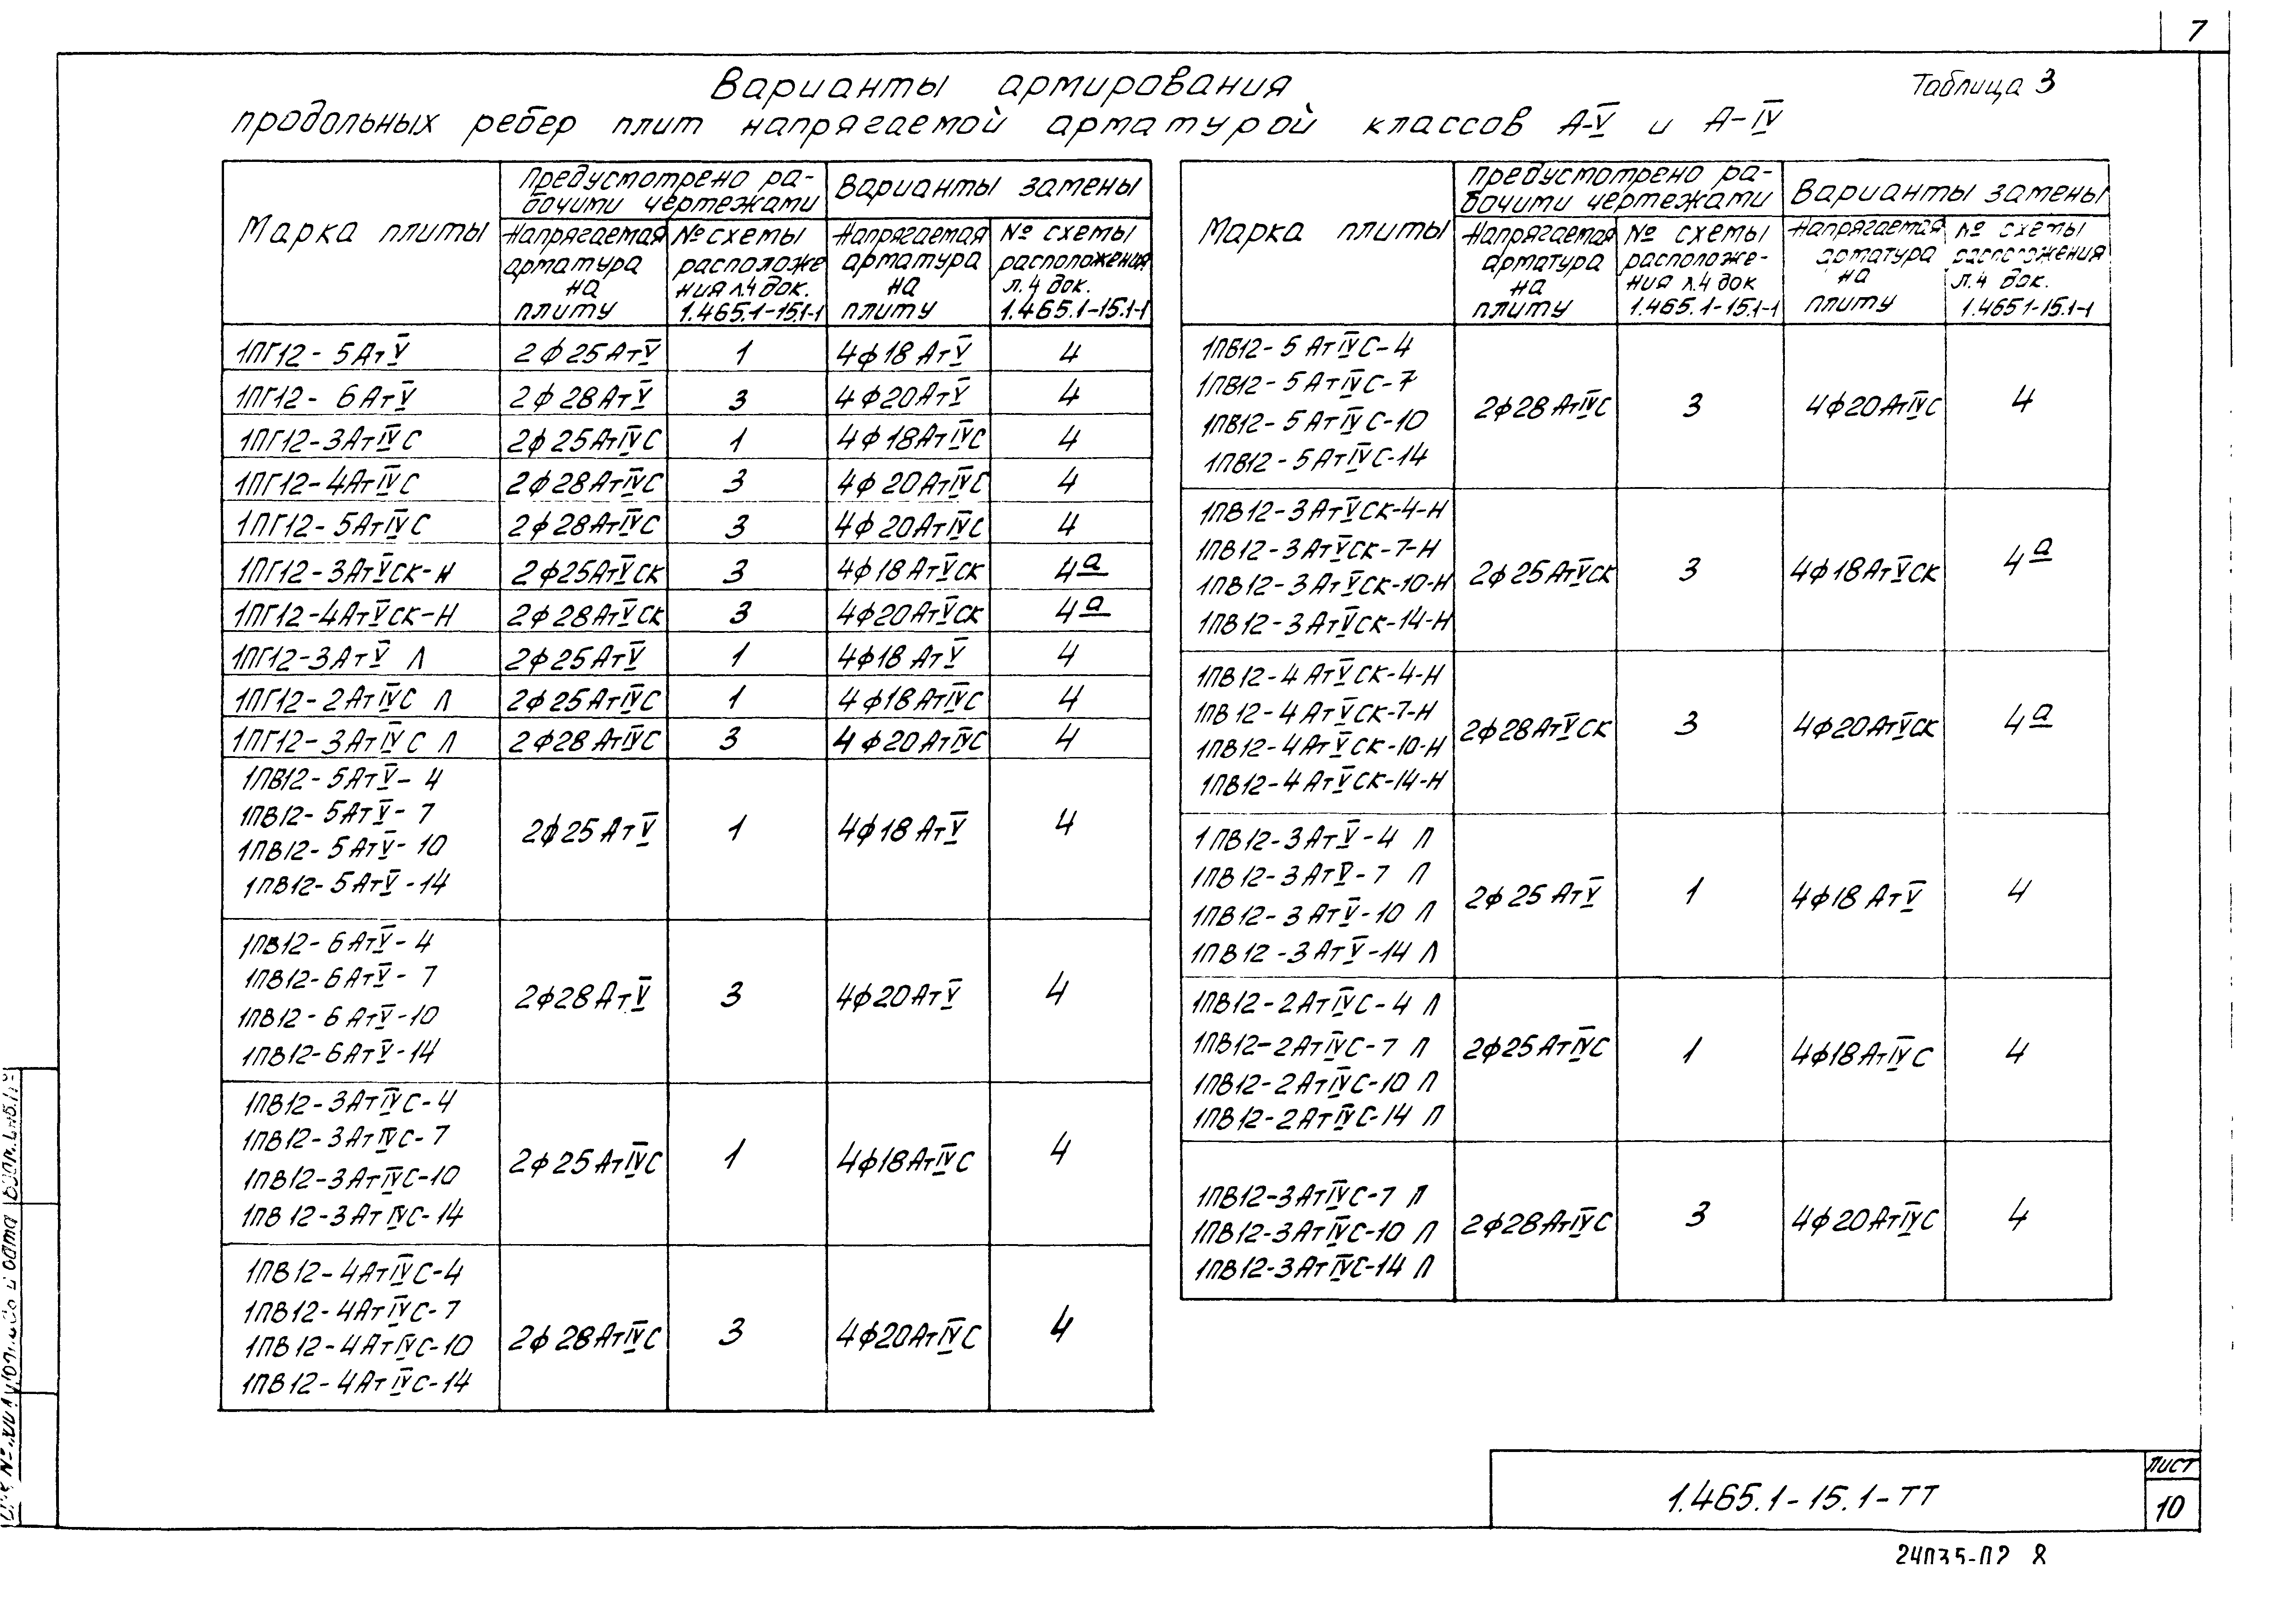 7
Варианты армирования
продольных ребер плит напрягаемой арматурой классов А-V и А-IV
Таблица 3
Марка плиты
Предусмотрено ра-
бочими чертежами
Варианты замены
Напрягаемая
арматура
на
плиту
№ схемы
расположе
ния л.4 док.
1.465.1-15.1-1
Напрягаемая
арматура
на
плиту
№ схемы
расположения
л.4 док.
1.465.1-15.1-1
1ПГ12-5АтV 2ϕ25АтV 1 4ϕ18АтV 4
1ПГ12-6АтV 2ϕ28АтV 3 4ϕ20АтV 4
1ПГ12-3АтIVС 2ϕ25АтIVС 1 4ϕ18АтIVС 4
1ПГ12-4АтIVС 2ϕ28АтIVС 3 4ϕ20АтIVС 4
1ПГ12-5АтIVС 2ϕ28АтIVС 3 4ϕ20АтIVС 4
1ПГ12-3АтVСК-Н 2ϕ25АтVСК 3 4ϕ18АтVСК 4а
1ПГ12-4АтVСК-Н 2ϕ28АтVСК 3 4ϕ20АтVСК 4а
1ПГ12-3АтV Л 2ϕ25АтV 1 4ϕ18АтV 4
1ПГ12-2АтIVС Л 2ϕ25АтIVС 1 4ϕ18АтIVС 4
1ПГ12-3АтIVС Л 2ϕ28АтIVС 3 4ϕ20АтIVС 4
1ПВ12-5АтV-4
1ПВ12-5АтV-7
1ПВ12-5АтV-10
1ПВ12-5АтV-14
2ϕ25АтV 1 4ϕ18АтV 4
1ПВ12-6АтV-4
1ПВ12-6АтV-7
1ПВ12-6АтV-10
1ПВ12-6АтV-14
2ϕ28АтV 3 4ϕ20АтV 4
1ПВ12-3АтIVС-4
1ПВ12-3АтIVС-7
1ПВ12-3АтIVС-10
1ПВ12-3АтIVС-14
2ϕ25АтIVС 1 4ϕ18АтIVС 4
1ПВ12-4АтIVС-4
1ПВ12-4АтIVС-7
1ПВ12-4АтIVС-10
1ПВ12-4АтIVС-14
2ϕ28АтIVС 3 4ϕ20АтIVС 4
Марка плиты
Предусмотрено ра-
бочими чертежами
Варианты замены
Напрягаемая
арматура
на
плиту
№ схемы
расположе-
ния л.4 док
1.465.1-15.1-1
Напрягаемая
арматура
на
плиту
№ схемы
расположения
л.4 док.
1.465.1-15.1-1
1ПВ12-5АтIVС-4
1ПВ12-5АтIVС-7
1ПВ12-5АтIVС-10
1ПВ12-5АтIVС-14
2ϕ28АтIVС 3 4ϕ20АтIVС 4
1ПВ12-3АтVСК-4-Н
1ПВ12-3АтVСК-7-Н
1ПВ12-3АтVСК-10-Н
1ПВ12-3АтVСК-14-Н
2ϕ25АтVСК 3 4ϕ18АтVСК 4а
1ПВ12-4АтVСК-4-Н
1ПВ12-4АтVСК-7-Н
1ПВ12-4АтVСК-10-Н
1ПВ12-4АтVСК-14-Н
2ϕ28АтVСК 3 4ϕ20АтVСК 4а
1ПВ12-3АтV-4 Л
1ПВ12-3АтV-7 Л
1ПВ12-3АтV-10 Л
1ПВ12-3АтV-14 Л
2ϕ25АтV 1 4ϕ18АтV 4
1ПВ12-2АтIVС-4 Л
1ПВ12-2АтIVС-7 Л
1ПВ12-2АтIVС-10 Л
1ПВ12-2АтIVС-14 Л
2ϕ25АтIVС 1 4ϕ18АтIVС 4
1ПВ12-3АтIVС-7 Л
1ПВ12-3АтIVС-10 Л
1ПВ12-3АтIVС-14 Л
2ϕ28АтIVС 3 4ϕ20АтIVС 4
1.465.1-15.1-ТТ
Лист
10
8